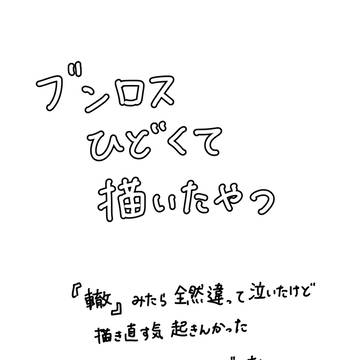 ブンロス
ひどくて
描いたやつ
『轍』みたら全然違って泣いたけど
描き直す気起きんかった